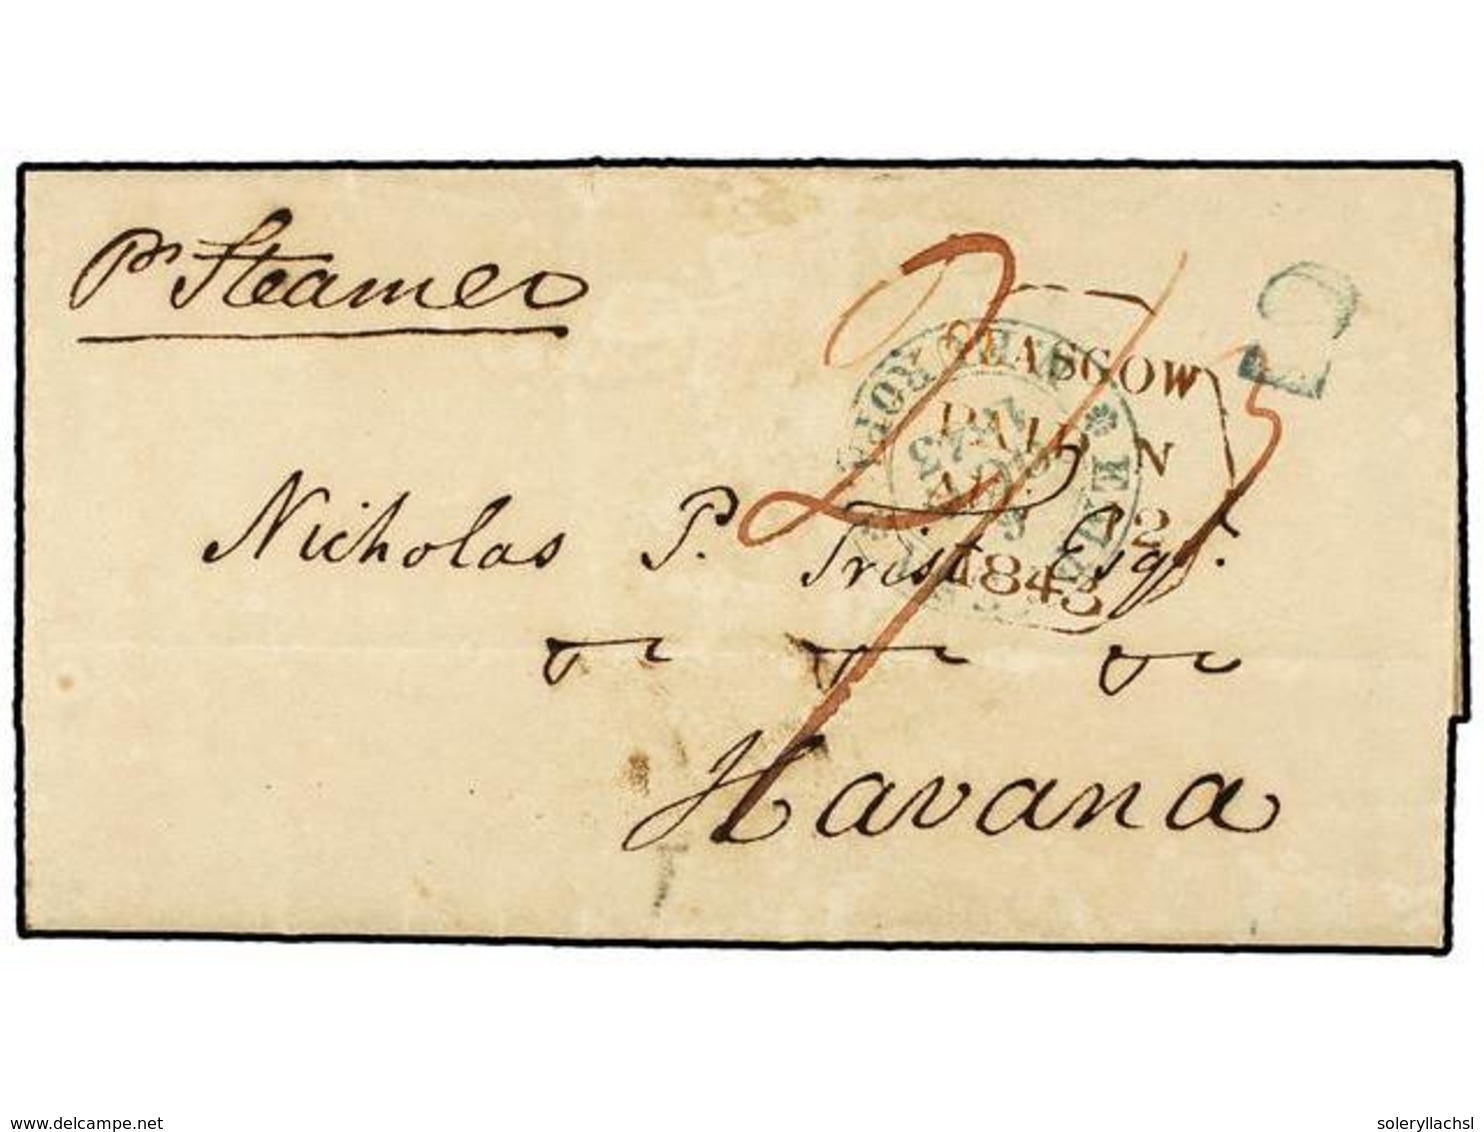 Pr Steamer
GLASGOW
PAID
N
2
1843
2/5
Nicholas P. Trist Esqr.
Havana
delcampe.net
soleryllachsl